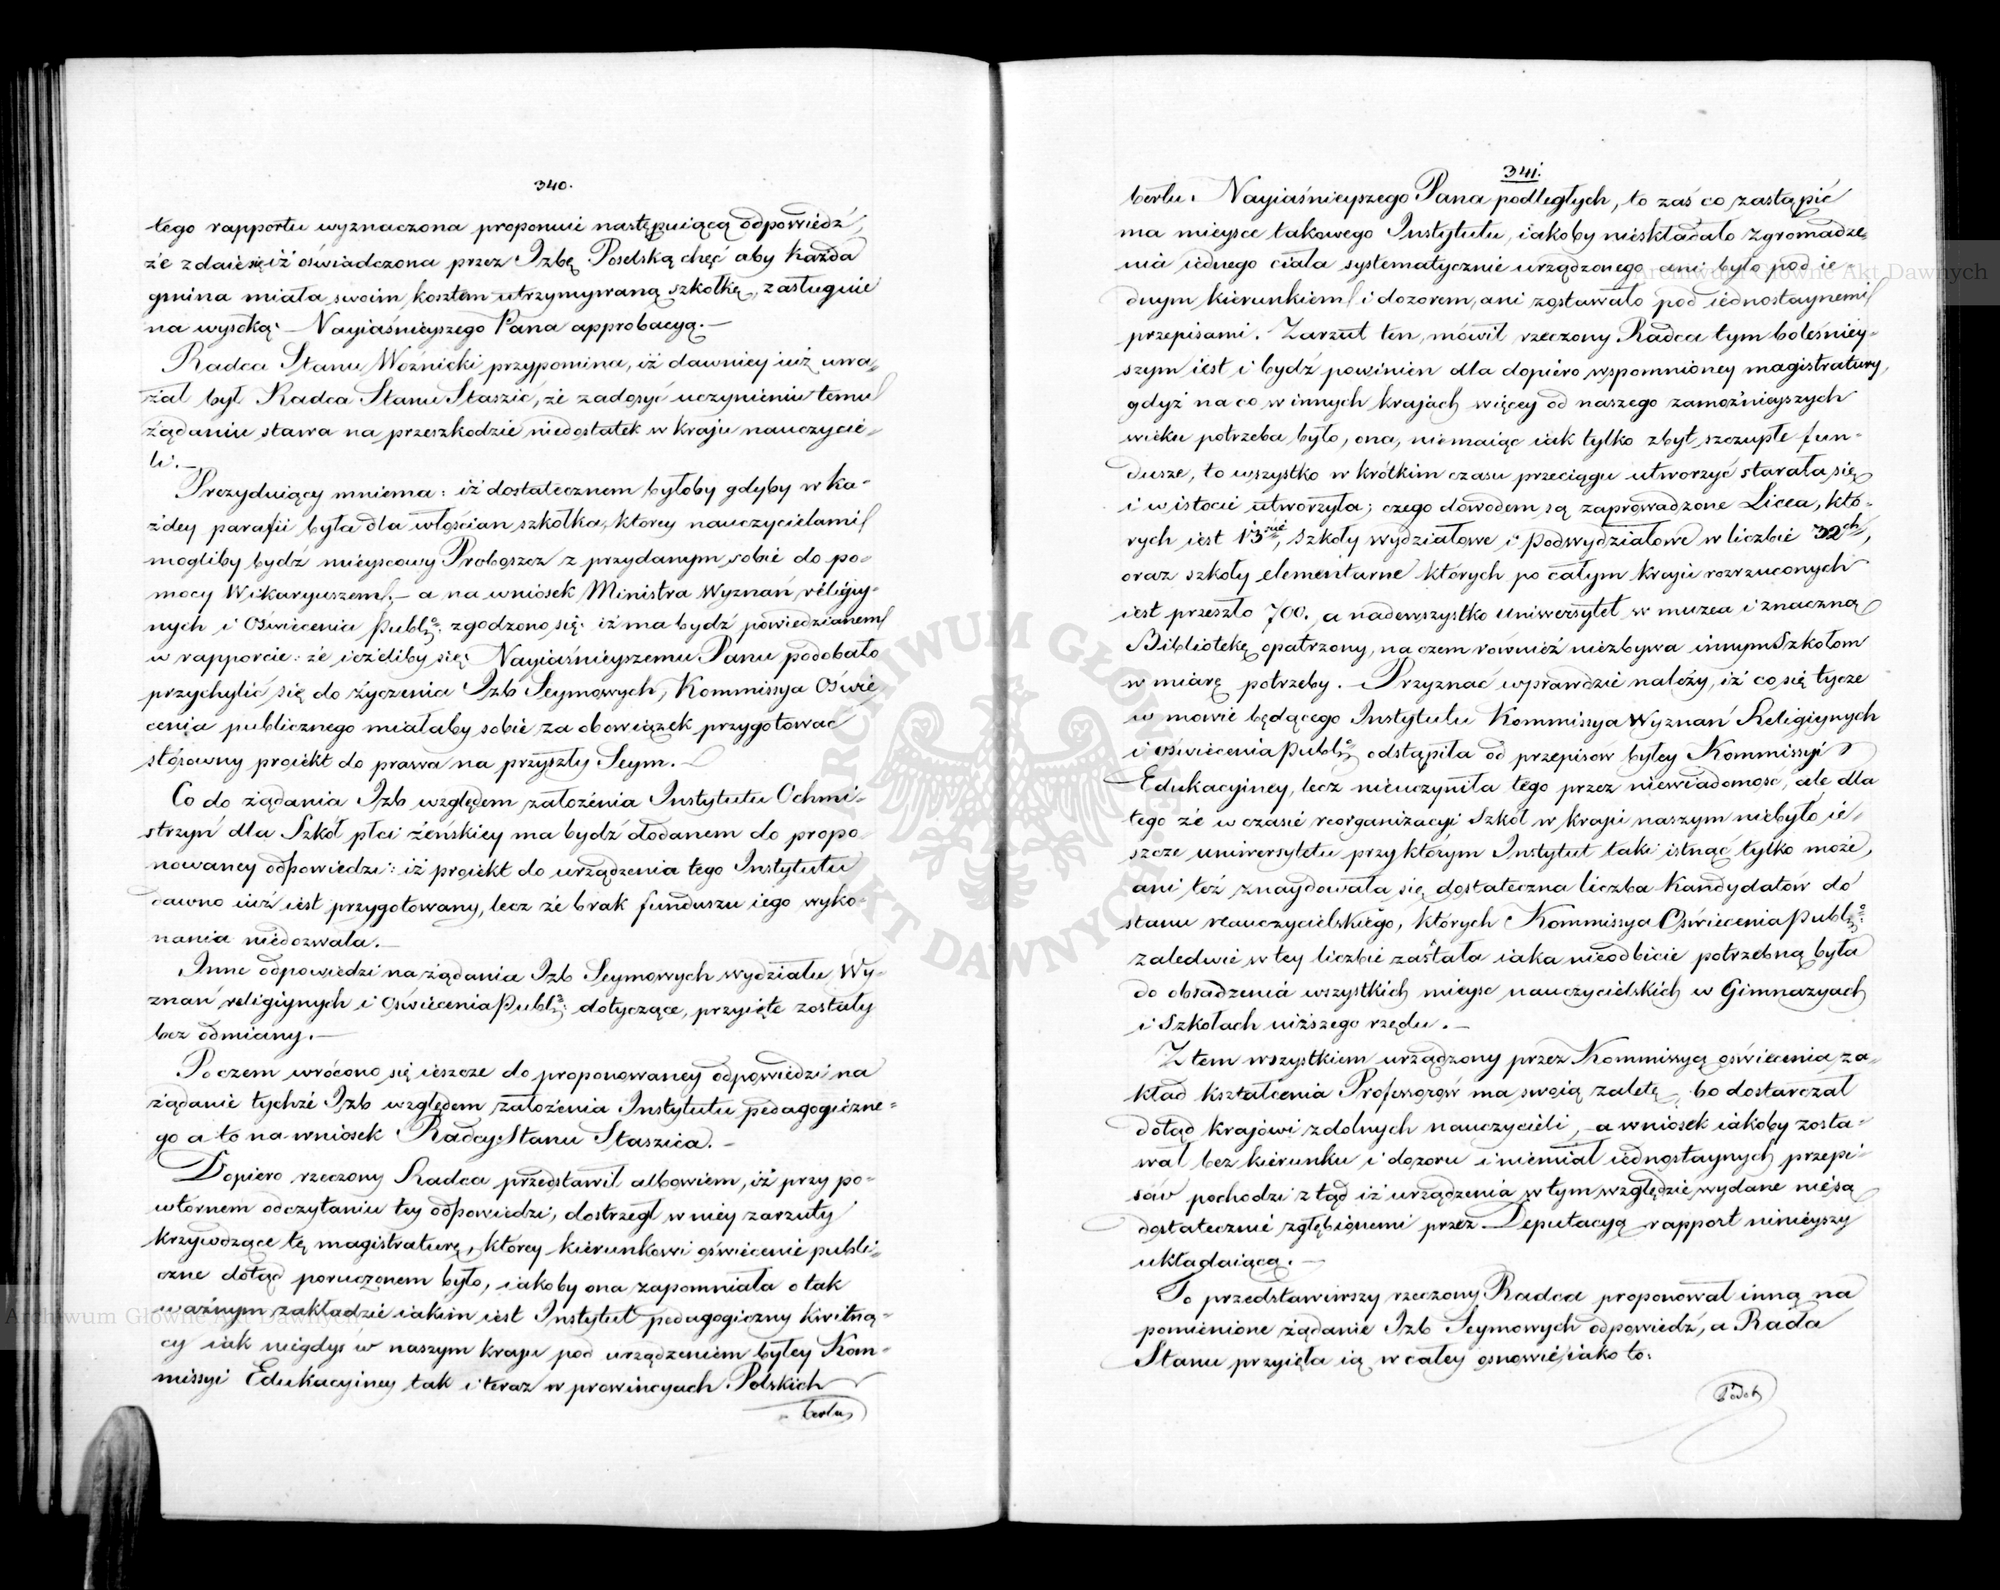 340.
tego rapportu wyznaczona proponuie następuiącą odpowiedź,
że zdaie się iż oświadczona przez Izbę Poselską chęć aby każda
gmina miała swoim kosztem utrzymywaną szkołkę, zasługuie
na wysoką Nayiaśnieyszego Pana approbacyą.—
Radca Stanu Woźnicki przypomina, iż dawniey iuż uwa-
żał był Radca Stanu Staszic, że zadosyć uczynieniu temu
żądaniu stawa na przeszkodzie niedostatek w kraju nauczycie-
li.—
Prezyduiący mniema: iż dostatecznem byłoby gdyby w ka-
żdey parafii była dla włościan szkołka, którey nauczycielami
mogliby bydź mieyscowy Proboszcz z przydanym sobie do po-
mocy Wikaryuszem,— a na wniosek Ministra Wyznań religiy-
nych i Oświecenia Publ: zgodzono się: iż ma bydź powiedzianem
w rapporcie: że ieżeliby się Nayiaśnieyszemu Panu podobało
przychylić się do życzenia Izb Seymowych, Kommissya Oświe
cenia publicznego miałaby sobie za obowiązek przygotować
stósowny projekt do prawa na przyszły Seym.—
Co do żądania Izb względem założenia Instytutu Ochmi-
strzyń dla Szkół płci żeńskiey ma bydź dodanem do propo-
nowaney odpowiedzi: iż projekt do urządzenia tego Instytutu
dawno iuż iest przygotowany, lecz że brak funduszu iego wyko-
nania niedozwala.—
Inne odpowiedzi na żądania Izb Seymowych wydziału Wy-
znań religiynych i Oświecenia Publ: dotyczące, przyięte zostały
bez odmiany.—
Poczem wrócono się ieszcze do proponowaney odpowiedzi na
żądanie tychże Izb względem założenia Instytutu pedagogiczne-
go a to na wniosek Radcy Stanu Staszica.—
Dopiero rzeczony Radca przedstawił albowiem, iż przy po-
wtórnem odczytaniu tey odpowiedzi, dostrzegł w niey zarzuty
krzywdzące tę magistraturę, którey kierunkowi oświecenie publi-
czne dotąd poruczonem było, iakoby ona zapomniała o tak
ważnym zakładzie iakim iest Instytut pedagogiczny kwitną-
cy iak niegdyś w naszym kraju pod urządzeniem byłey Kom-
missyi Edukacyiney, tak i teraz w prowincyach Polskich
berłu
341.
berłu Nayiaśnieyszego Pana podległych, to zaś co zastąpić
ma mieysce takowego Instytutu, iakoby nieskładało zgromadze-
nia iednego ciała systematycznie urządzonego ani było pod ie-
dnym kierunkiem i dozorem, ani zostawało pod iednostaynemi
przepisami. Zarzut ten, mówił rzeczony Radca tym boleśniey-
szym iest i bydź powinien dla dopiero wspomnioney magistratury,
gdyż na co w innych krajach więcey od naszego zamożnieyszych
wieku potrzeba było, ona, niemaiąc iak tylko zbyt szczupłe fun-
dusze, to wszystko w krótkim czasu przeciągu utworzyć starała się
i w istocie utworzyła; czego dowodem są zaprowadzone Licea, któ-
rych iest 13ście, szkoły wydziałowe i podwydziałowe w liczbie 32ch,
oraz szkoły elementarne których po całym kraju rozrzuconych
iest przeszło 700. a nadewszystko uniwersytet w muzea i znaczną
Bibliotekę opatrzony, na czem również niezbywa innym Szkołom
w miarę potrzeby.— Przyznać wprawdzie należy, iż co się tycze
w mowie będącego Instytutu Kommissya Wyznań Religiynych
i oświecenia Publ: odstąpiła od przepisow byłey Kommissyi
Edukacyiney, lecz nieuczyniła tego przez niewiadomość, ale dla
tego że w czasie reorganizacyi szkół w kraju naszym niebyło ie-
szcze uniwersytetu przy którym Instytut taki istnąć tylko może,
ani też znaydowała się dostateczna liczba kandydatów do
stanu nauczycielskiego, których Kommissya Oświecenia Publ:
zaledwie w tey liczbie zastała iaka nieodbicie potrzebną była
do obsadzenia wszystkich mieysc nauczycielskich w Gimnazyach
i Szkołach niższego rzędu.—
Z tem wszystkiem urządzony przez Kommissyą oświecenia za-
kład kształcenia Professorów ma swoią zaletę, bo dostarczał
dotąd krajowi zdolnych nauczycieli,— a wniosek iakoby zosta-
wał bez kierunku i dozoru i niemiał iednostaynych przepi-
sów pochodzi ztąd iż urządzenia w tym względzie wydane nie są
dostatecznie zgłębionemi przez Deputacyą rapport ninieyszy
układaiącą.—
To przedstawiwszy rzeczony Radca proponował inną na
pomienione żądanie Izb Seymowych odpowiedź, a Rada
Stanu przyięła ią w całey osnowie, iako to:
ARCHIWUM GŁÓWNE AKT DAWNYCH
Archiwum Główne Akt Dawnych
Archiwum Główne Akt Dawnych